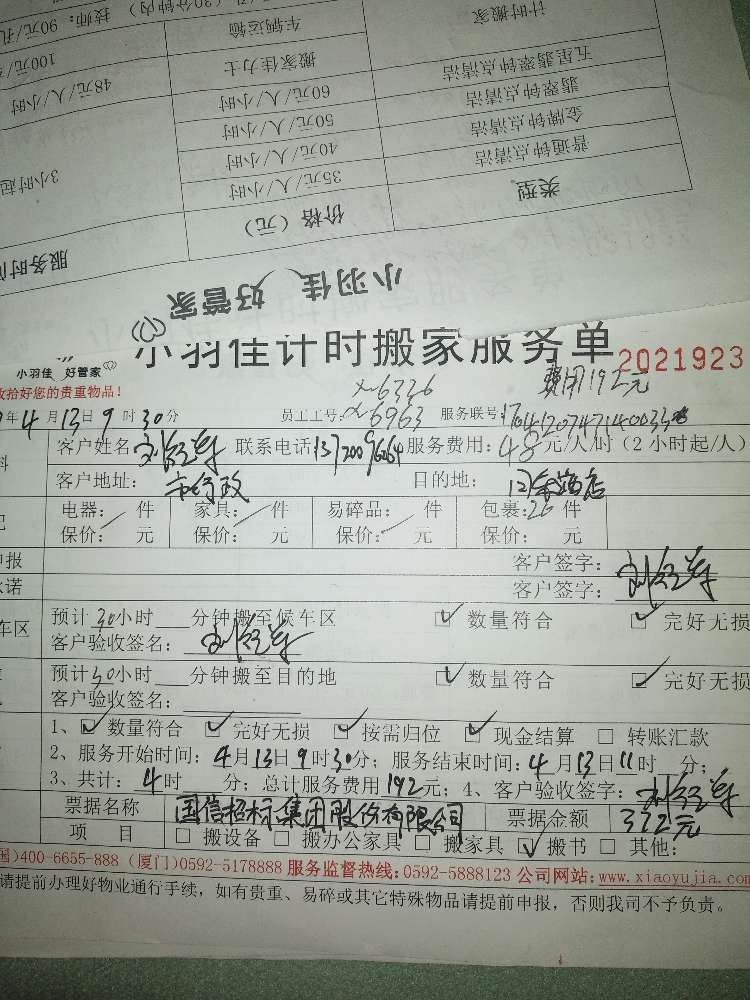 计时搬家
车辆运输
技师：90元/孔
(30分钟内)
五星翡翠钟点清洁
搬家佳力士
100元/
翡翠钟点清洁
60元/人/小时
48元/人/小时
金牌钟点清洁
50元/人/小时
普通钟点清洁
40元/人/小时
35元/人/小时
3小时起
类型
价格（元）
服务时间
小羽佳 好管家
小羽佳计时搬家服务单 2021923
小羽佳 好管家
费用192元
收拾好您的贵重物品！
x-6336
年4月13日9时30分 员工工号：x-6963 服务联号：
客户姓名 联系电话：13720096264 服务费用：48元/人/时（2小时起/人）
客户地址：市行政 目的地：
电器： 件 家具： 件 易碎品： 件 包裹：26 件
保价： 元 保价： 元 保价： 元 保价： 元
申报 客户签字：
承诺 客户签字：
车区 预计30小时 分钟搬至候车区 ☑ 数量符合 ☑ 完好无损
客户验收签名：
预计30小时 分钟搬至目的地 ☑ 数量符合 ☑ 完好无损
客户验收签名：
1、☑ 数量符合 ☑ 完好无损 ☑ 按需归位 ☑ 现金结算 □ 转账汇款
2、服务开始时间：4月13日9时30分；服务结束时间：4月13日11时 分；
3、共计：4时 分；总计服务费用192元；4、客户验收签字：
票据名称 国信招标集团股份有限公司 票据金额 372元
项 目 □ 搬设备 □ 搬办公家具 □ 搬家具 ☑ 搬书 □ 其他：
国)400-6655-888 (厦门)0592-5178888 服务监督热线：0592-5888123 公司网站：www.xiaoyujia.com
请提前办理好物业通行手续，如有贵重、易碎或其它特殊物品请提前申报，否则我司不予负责。